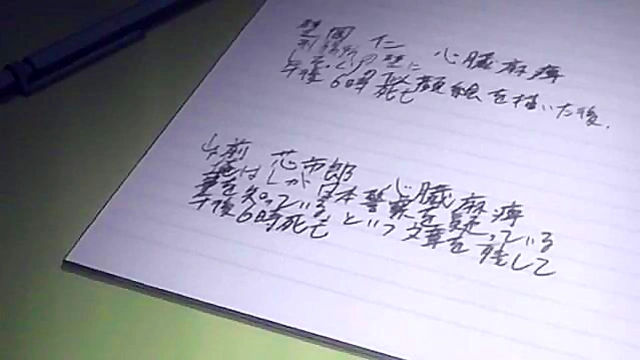 岡 仁 心臓麻痺
刑務所の壁に
似顔絵を描いた後、
午後6時死亡
前 芯市郎 心臓麻痺
俺はLが日本警察を疑っている
事を知っている という文章を残して
午後6時死亡